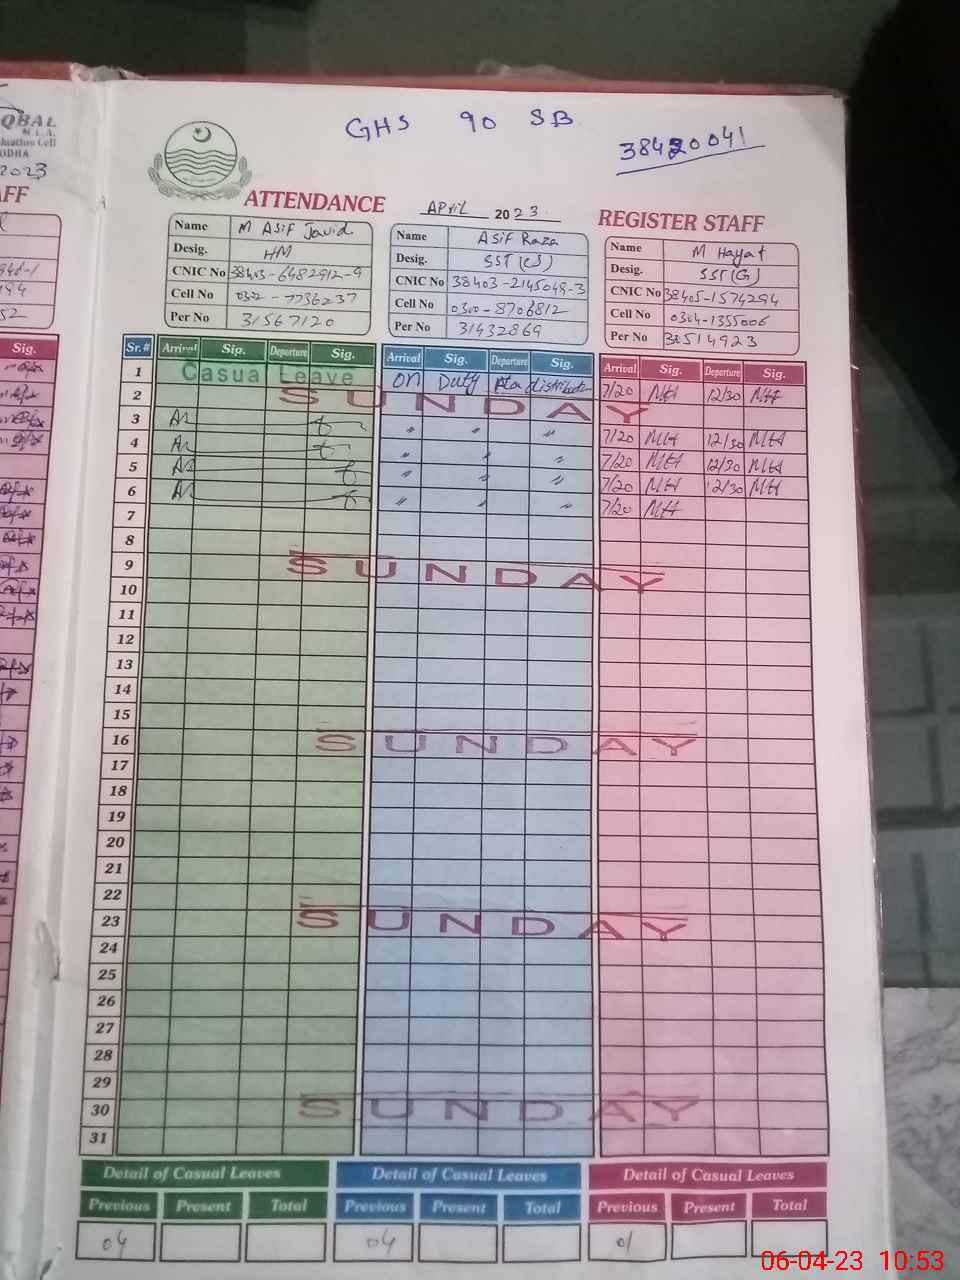 GHS 90 SB
38420041
QBAL
M.L.A.
2023
AFF
ATTENDANCE APRIL 2023 REGISTER STAFF
Name M Asif Javid Name Asif Raza Name M Hayat
Desig. HM Desig. SST(CS) Desig. SST(G)
CNIC No 38403-6482912-9 CNIC No 38403-2145049-3 CNIC No 38405-1574294
Cell No 0302-7736237 Cell No 0300-8706812 Cell No 0304-1355006
Per No 31567120 Per No 31432869 Per No 32514923
Sig. Sr.# Arrival Sig. Departure Sig. Arrival Sig. Departure Sig. Arrival Sig. Departure Sig.
1 Casual Leave on Duty distribution 7/20 MH 12/30 MH
2 SUNDAY
3 〃 〃 〃 7/20 MH 12/30 MH
4 〃 〃 〃 7/20 MH 12/30 MH
5 〃 〃 〃 7/20 MH 12/30 MH
6 〃 〃 〃 7/20 MH
7
8
9 SUNDAY
10
11
12
13
14
15
16 SUNDAY
17
18
19
20
21
22
23 SUNDAY
24
25
26
27
28
29
30 SUNDAY
31
Detail of Casual Leaves Detail of Casual Leaves Detail of Casual Leaves
Previous Present Total Previous Present Total Previous Present Total
04 04 01
06-04-23 10:53